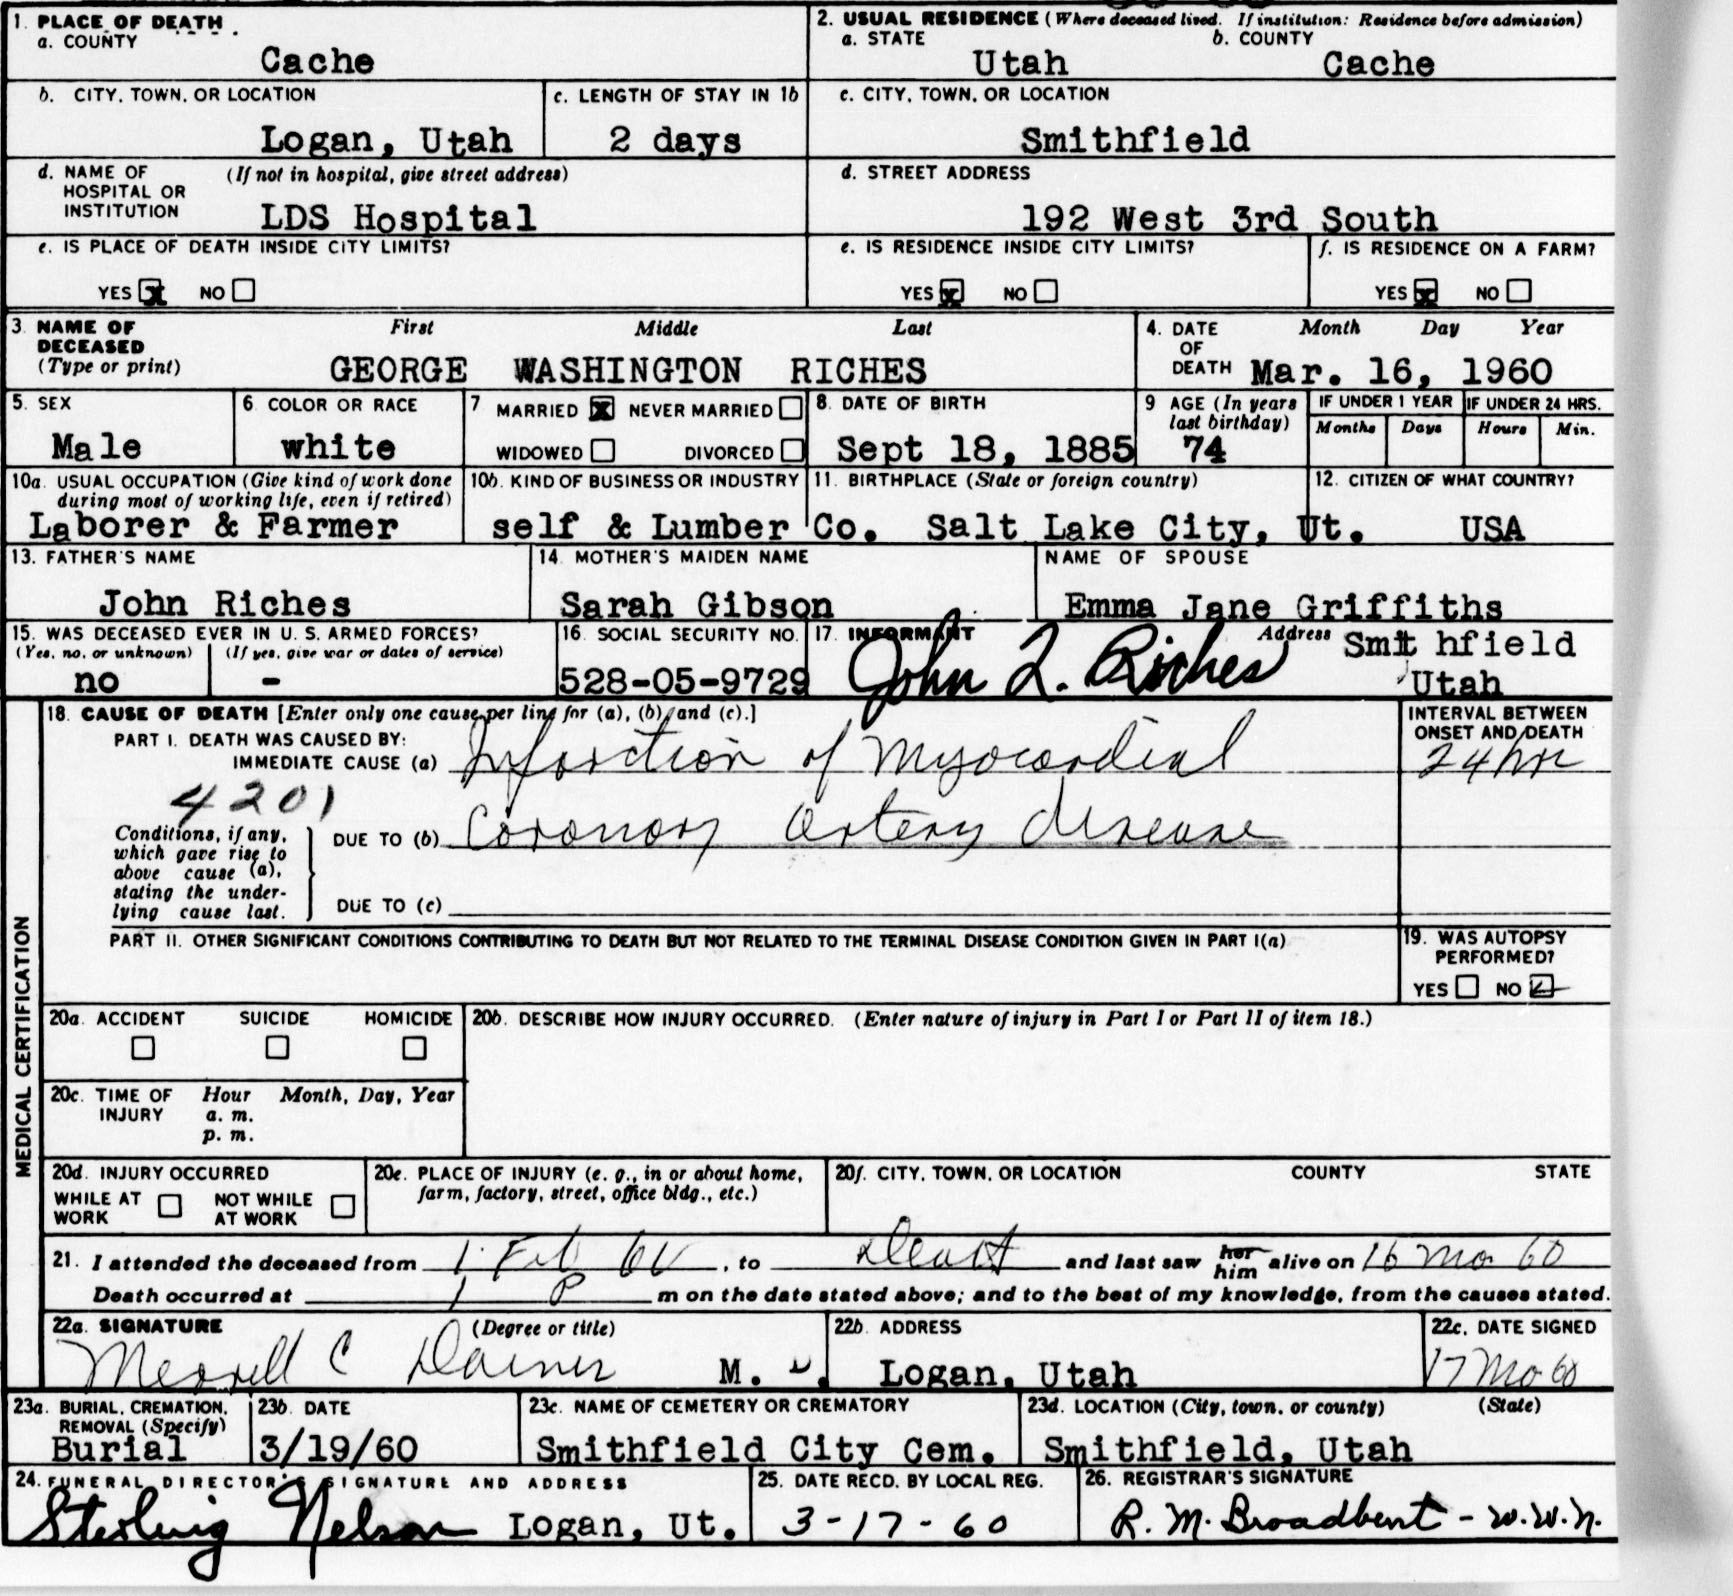 1. PLACE OF DEATH
a. COUNTY
Cache
2. USUAL RESIDENCE (Where deceased lived. If institution: Residence before admission)
a. STATE b. COUNTY
Utah Cache
b. CITY, TOWN, OR LOCATION
Logan, Utah
c. LENGTH OF STAY IN 1b
2 days
c. CITY, TOWN, OR LOCATION
Smithfield
d. NAME OF (If not in hospital, give street address)
HOSPITAL OR
INSTITUTION
LDS Hospital
d. STREET ADDRESS
192 West 3rd South
e. IS PLACE OF DEATH INSIDE CITY LIMITS?
YES x NO
e. IS RESIDENCE INSIDE CITY LIMITS?
YES x NO
f. IS RESIDENCE ON A FARM?
YES x NO
3. NAME OF First Middle Last
DECEASED
(Type or print)
GEORGE WASHINGTON RICHES
4. DATE Month Day Year
OF
DEATH Mar. 16, 1960
5. SEX
Male
6. COLOR OR RACE
white
7 MARRIED x NEVER MARRIED
WIDOWED DIVORCED
8. DATE OF BIRTH
Sept 18, 1885
9 AGE (In years
last birthday)
74
IF UNDER 1 YEAR
Months Days
IF UNDER 24 HRS.
Hours Min.
10a. USUAL OCCUPATION (Give kind of work done
during most of working life, even if retired)
Laborer & Farmer
10b. KIND OF BUSINESS OR INDUSTRY
self & Lumber Co.
11. BIRTHPLACE (State or foreign country)
Salt Lake City, Ut.
12. CITIZEN OF WHAT COUNTRY?
USA
13. FATHER'S NAME
John Riches
14. MOTHER'S MAIDEN NAME
Sarah Gibson
NAME OF SPOUSE
Emma Jane Griffiths
15. WAS DECEASED EVER IN U. S. ARMED FORCES?
(Yes, no, or unknown) (If yes, give war or dates of service)
no -
16. SOCIAL SECURITY NO.
528-05-9729
17. INFORMANT Address
John L. Riches
Smithfield
Utah
MEDICAL CERTIFICATION
18. CAUSE OF DEATH [Enter only one cause per line for (a), (b) and (c).]
PART I. DEATH WAS CAUSED BY:
IMMEDIATE CAUSE (a) Infarction of Myocardial
INTERVAL BETWEEN
ONSET AND DEATH
24 hr
4201
Conditions, if any,
which gave rise to
above cause (a),
stating the under-
lying cause last.
DUE TO (b) Coronary artery disease
DUE TO (c)
PART II. OTHER SIGNIFICANT CONDITIONS CONTRIBUTING TO DEATH BUT NOT RELATED TO THE TERMINAL DISEASE CONDITION GIVEN IN PART I(a)
19. WAS AUTOPSY
PERFORMED?
YES NO
20a. ACCIDENT SUICIDE HOMICIDE
20b. DESCRIBE HOW INJURY OCCURRED. (Enter nature of injury in Part I or Part II of item 18.)
20c. TIME OF Hour Month, Day, Year
INJURY a. m.
p. m.
20d. INJURY OCCURRED
WHILE AT NOT WHILE
WORK AT WORK
20e. PLACE OF INJURY (e. g., in or about home,
farm, factory, street, office bldg., etc.)
20f. CITY, TOWN, OR LOCATION COUNTY STATE
21. I attended the deceased from 1 Feb 60, to Death and last saw her him alive on 16 Mar 60
Death occurred at 1 P m on the date stated above; and to the best of my knowledge, from the causes stated.
22a. SIGNATURE (Degree or title)
Merrell C Daines M. D.
22b. ADDRESS
Logan, Utah
22c. DATE SIGNED
17 Mar 60
23a. BURIAL, CREMATION,
REMOVAL (Specify)
Burial
23b. DATE
3/19/60
23c. NAME OF CEMETERY OR CREMATORY
Smithfield City Cem.
23d. LOCATION (City, town, or county) (State)
Smithfield, Utah
24. FUNERAL DIRECTOR'S SIGNATURE AND ADDRESS
Sterling Nelson Logan, Ut.
25. DATE RECD. BY LOCAL REG.
3-17-60
26. REGISTRAR'S SIGNATURE
R. M. Broadbent - w.w.n.